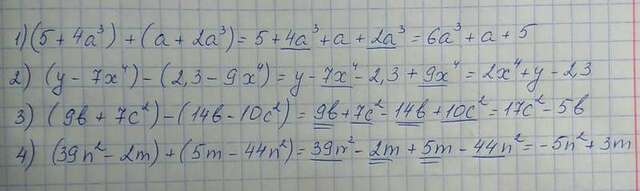 1) (5 + 4a³) + (a + 2a³) = 5 + 4a³ + a + 2a³ = 6a³ + a + 5
2) (y - 7x⁴) - (2,3 - 9x⁴) = y - 7x⁴ - 2,3 + 9x⁴ = 2x⁴ + y - 2,3
3) (9b + 7c²) - (14b - 10c²) = 9b + 7c² - 14b + 10c² = 17c² - 5b
4) (39n² - 2m) + (5m - 44n²) = 39n² - 2m + 5m - 44n² = -5n² + 3m